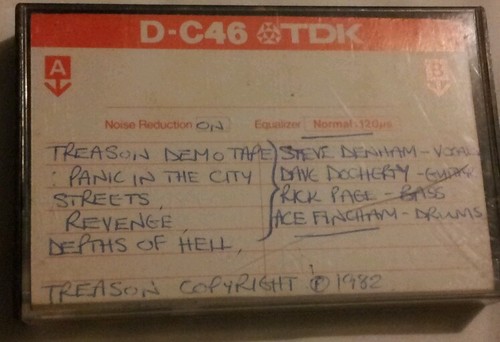 D-C46 TDK
A B
Noise Reduction ON Equalizer Normal:120µs
TREASON DEMO TAPE STEVE DENHAM - VOCAL
: PANIC IN THE CITY DAVE DOCHERTY - GUITAR
STREETS, RICK PAGE - BASS
REVENGE, ACE FINCHAM - DRUMS
DEPTHS OF HELL,
TREASON COPYRIGHT ℗ 1982